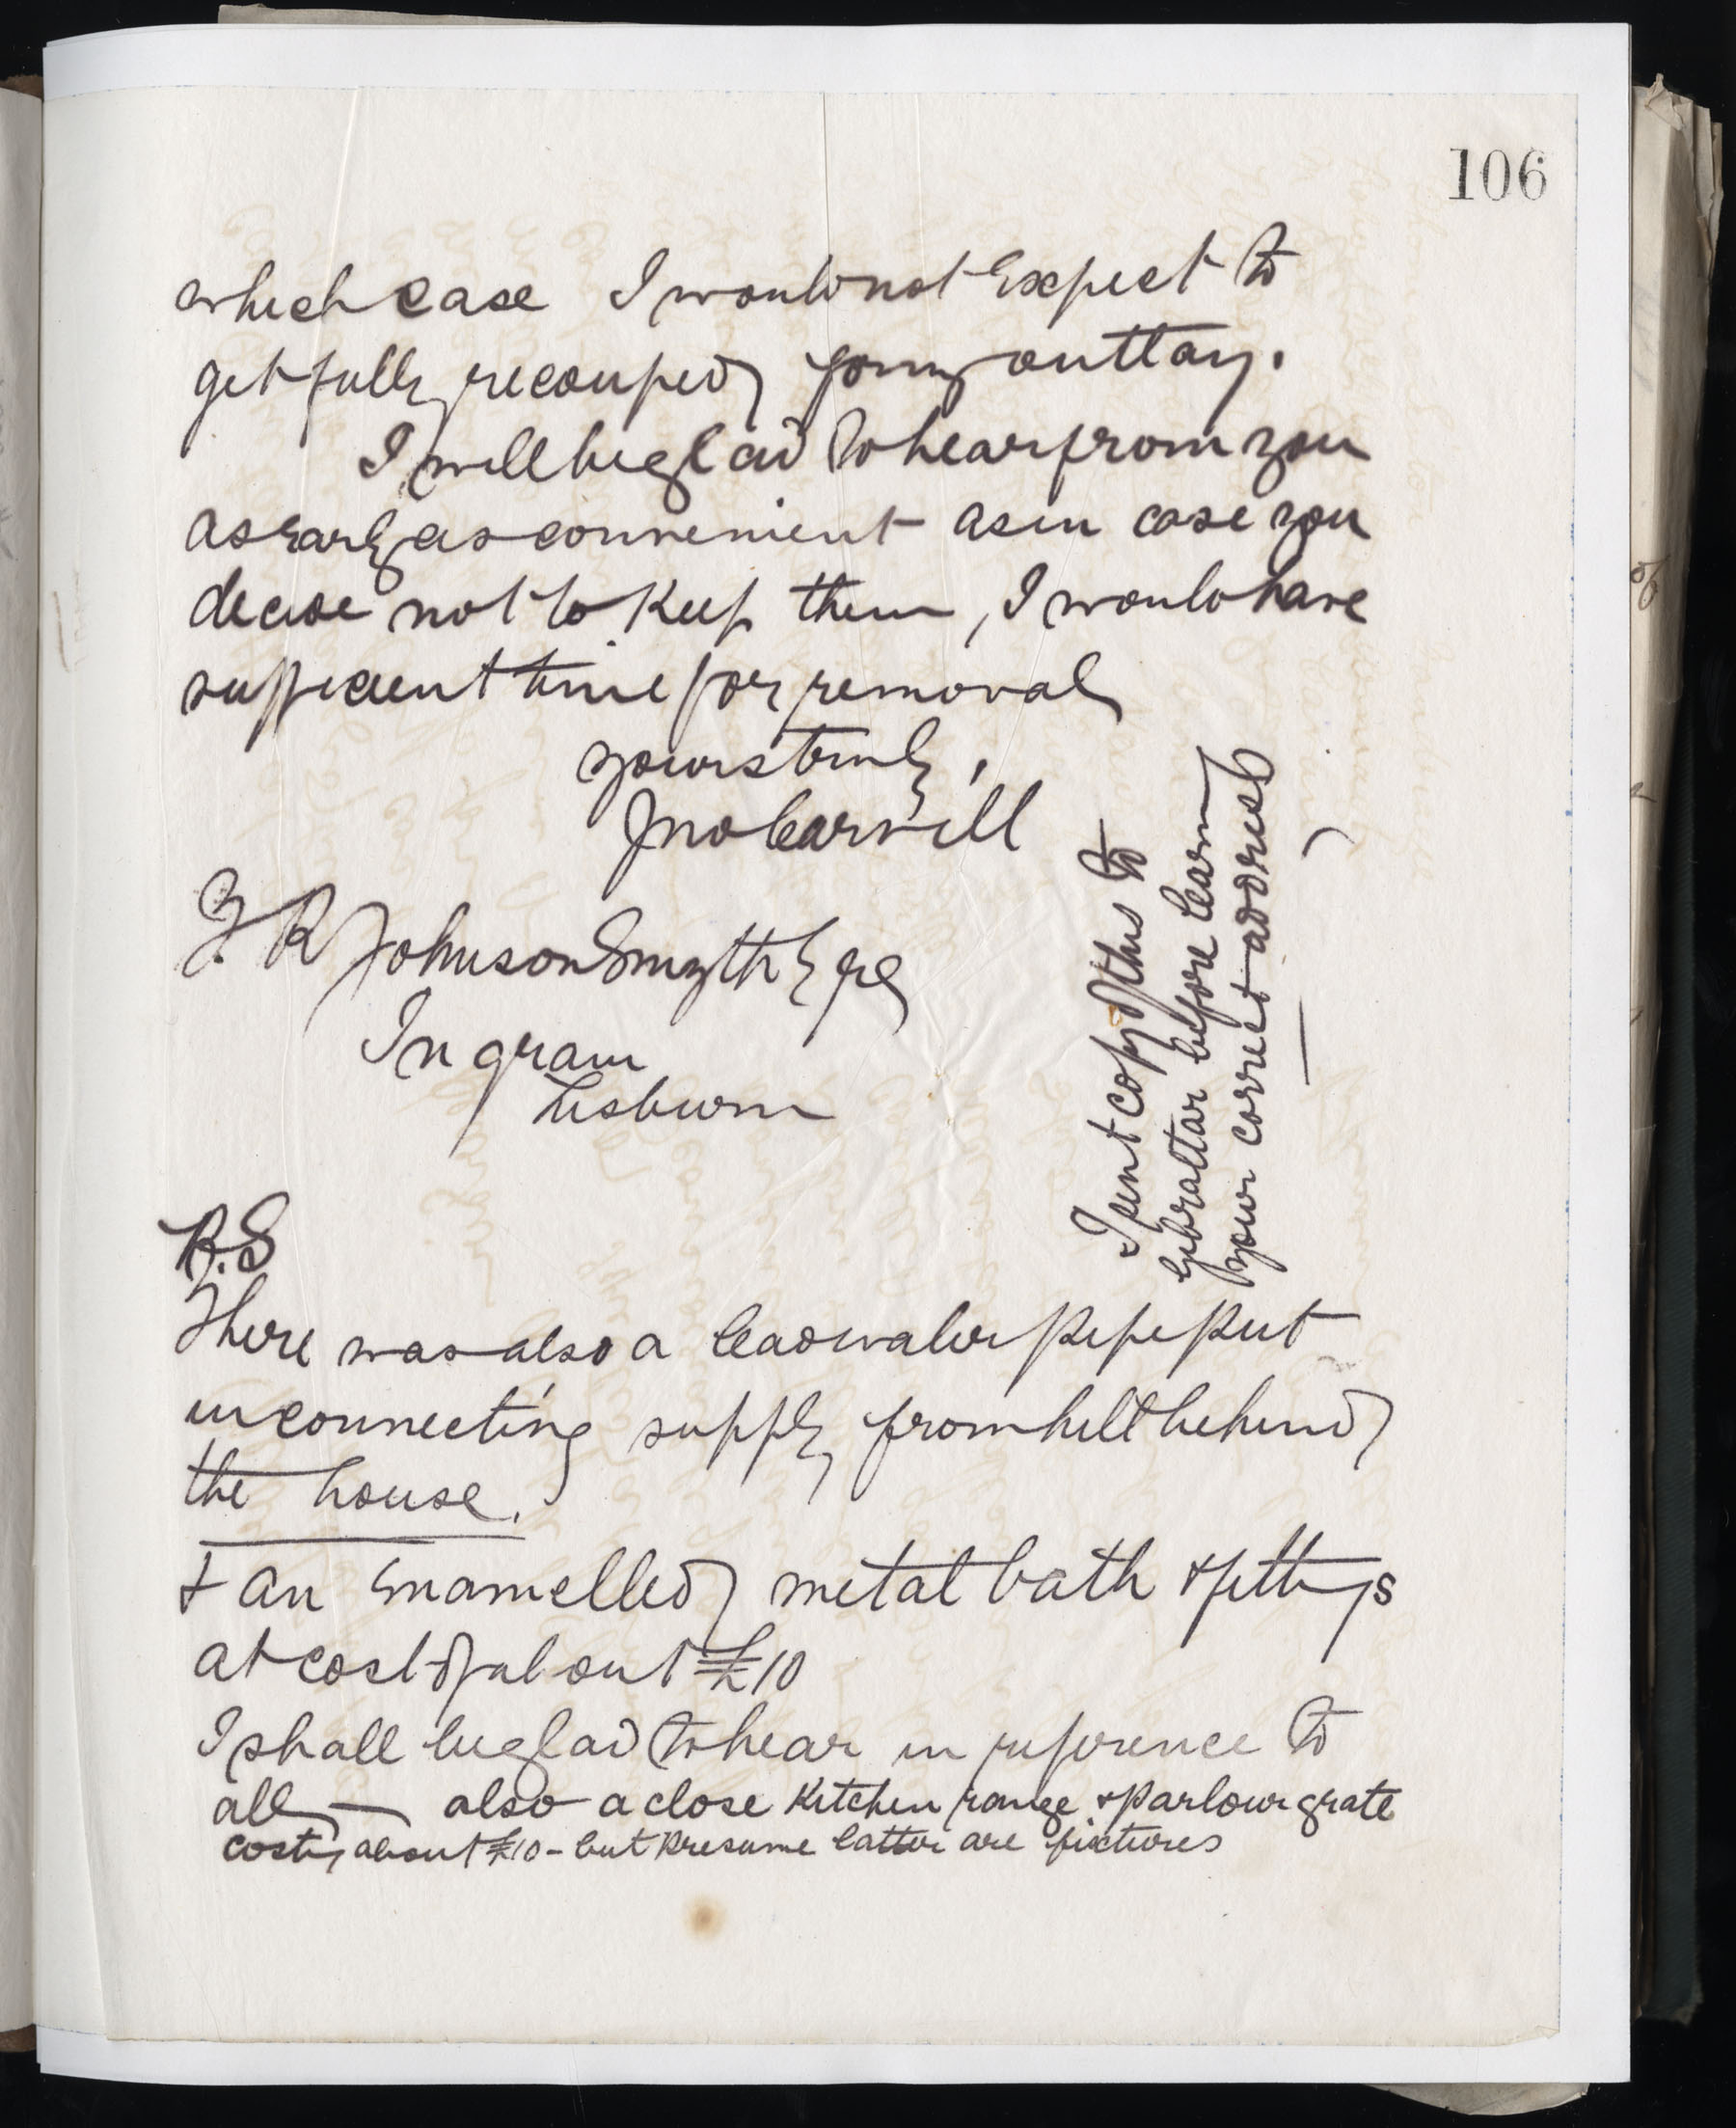 106
which case I would not Expect to
get fully recouped for my outlay.
I will be glad to hear from you
as early as convenient as in case you
decide not to keep them, I would have
sufficient time for removal
yours truly,
Jno Carvill
F. R Johnson Smyth Esqre
Ingram
Lisburn
I sent copy of this to
Gibraltar before learning
your correct address
P.S
There was also a lead water pipe put
in connecting supply from hill behind
the house.
& an Enamelled metal bath & fittings
at cost of about £10
I shall be glad to hear in reference to
all — also a close Kitchen range & parlour grate
costing about £10 - but presume latter are fixtures